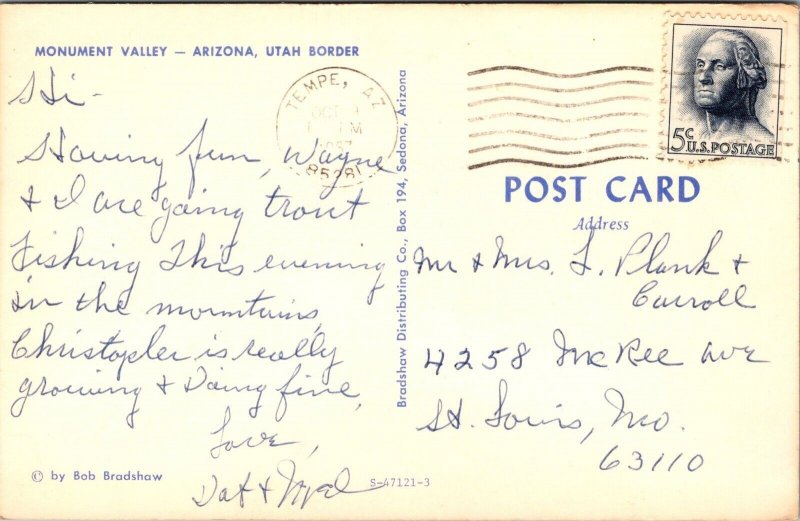 MONUMENT VALLEY — ARIZONA, UTAH BORDER
Hi -
Having fun, Wayne
& I are going trout
Fishing This evening
in the mountains,
Christopher is really
growing & Doing fine,
Love,
© by Bob Bradshaw
TEMPE, AZ
OCT
85281
Bradshaw Distributing Co., Box 194, Sedona, Arizona
S-47121-3
5c
U.S. POSTAGE
POST CARD
Address
Mr & Mrs. L. Plank &
Carroll
4258 McRee Ave
St. Louis, Mo.
63110